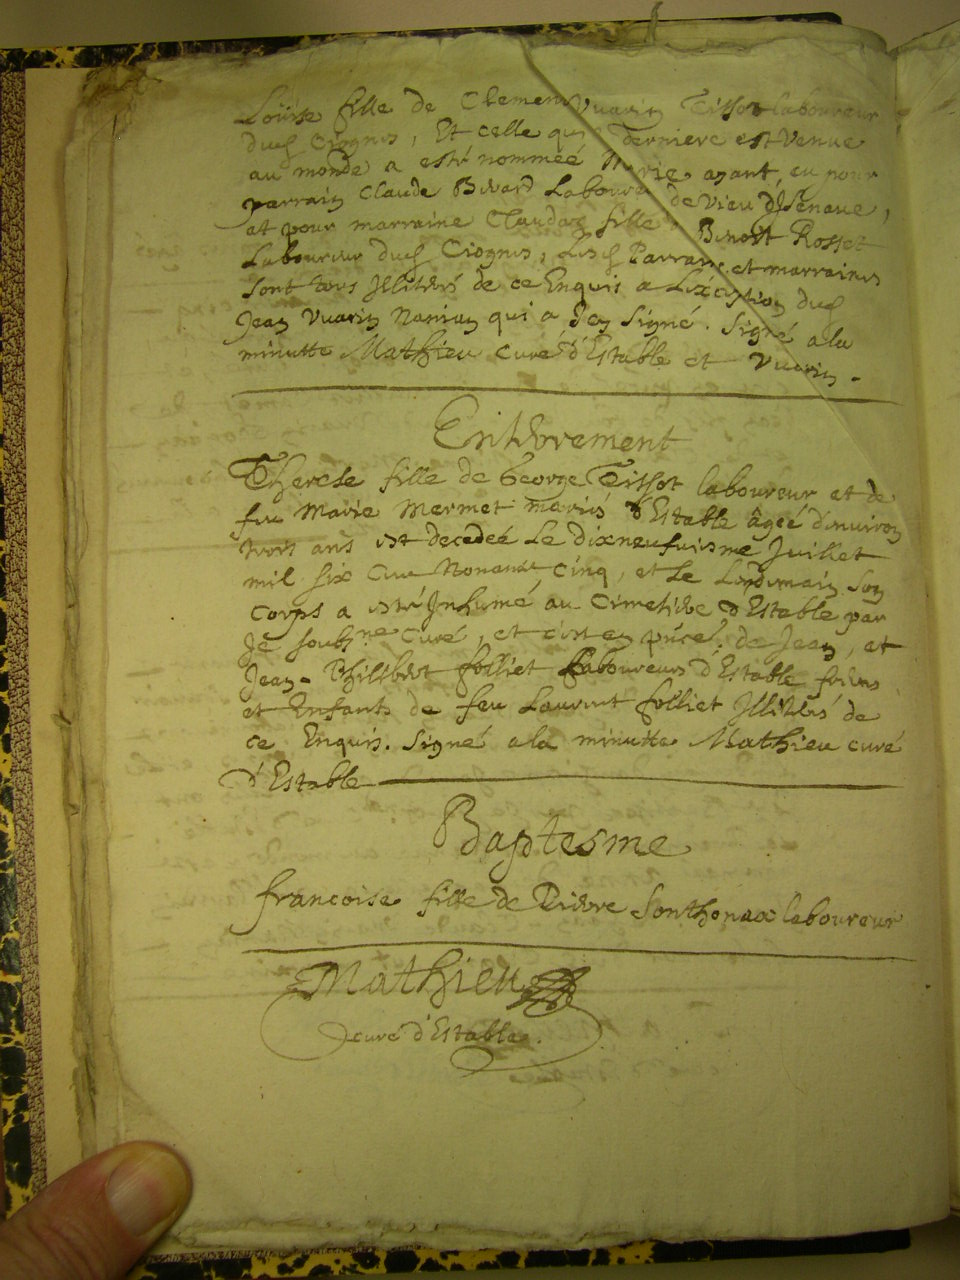 Loüise fille de Clemens Vuarin Tissot laboureur
dud Ciognis, Et celle qui derniere est Venue
au monde a esté nommeé Marie ayant eu pour
parrain Claude Bivard Laboureur de Vieu d'Isenave,
et pour marraine Claudaz fille Benoist Rosset
Laboureur dud Ciognis, Lesd Parrain et marraines
sont tous Illiterés de ce Enquis a Lexception dud
Jean Vuarin Nanian qui a Icy signé. Signé a la
minutte Mathieu curé d'Estable et Vuarin.
Enterrement
Therese fille de George Tissot laboureur et de
feu Marie Mermet mariés d'Estable âgeé d'environ
trois ans est decedeé Le dixneufuiesme Juillet
mil six Cent Nonante Cinq, et Le Lendemain son
corps a esté Inhumé au Cimetiere d'Estable par
Je soubs.ne Curé, et c'est en pñce de Jean, et
Jean-Philibert folliet Laboureurs d'Estable freres
et Enfants de feu Laurent folliet Illiterés de
ce Enquis. Signé a la minutte Mathieu curé
d'Estable
Baptesme
francoise fille de Pierre Sonthonax laboureur
Mathieu
curé d'Estable.